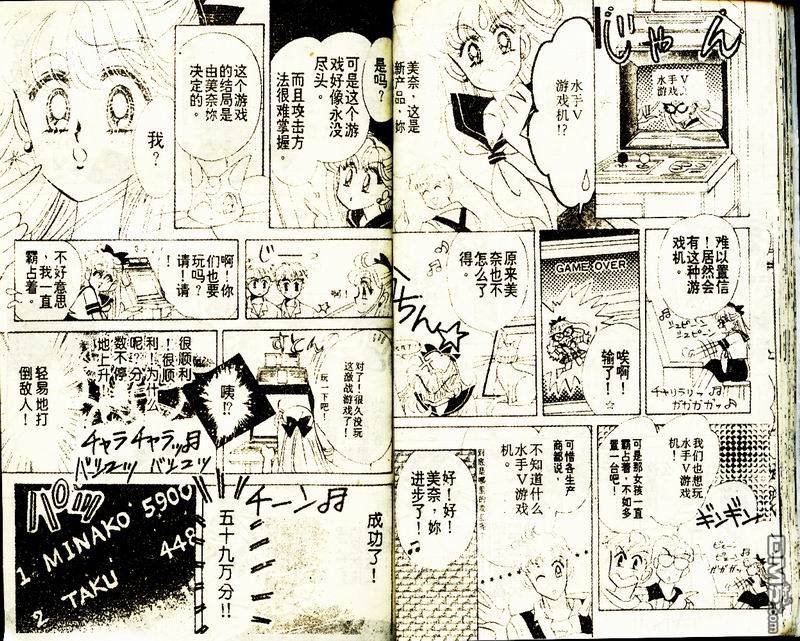 じゃん
水手V
游戏机
水手V
游戏机!?
美奈，这是
新产品，妳
是吗？
可是这个游
戏好像永没
尽头。
而且攻击方
法很难掌握。
这个游戏
的结局是
由美奈妳
决定的。
我？
难以置信
！居然会
有这种游
戏机。
チャリラリッ♪
ガガガガッ♪
GAME OVER
唉啊！
输了！
原来美
奈也不
怎么了
得。
じ
啊！你
们也要
玩吗？
请！请
不好意思
，我一直
霸占着。
すとん
对了！很久没玩
这激战游戏了！
玩一下吧！
咦!?
很顺利
！很顺
利！为什么
呢？分
数不停
地上升
轻易地打
倒敌人！
チャラチャラッ♪
我们也想玩
水手V游戏
机
可是那女孩一直
霸占着，不如多
置一台吧！
ギンギン
可惜各生产
商都说，
不知道什么
水手V游戏
机。
到底是哪里的
好！好！
美奈，妳
进步了！
♪
チーン♪
成功了！
五十九万分!!
パッ
1. MINAKO 5900
448
2 TAKU
DM5.com